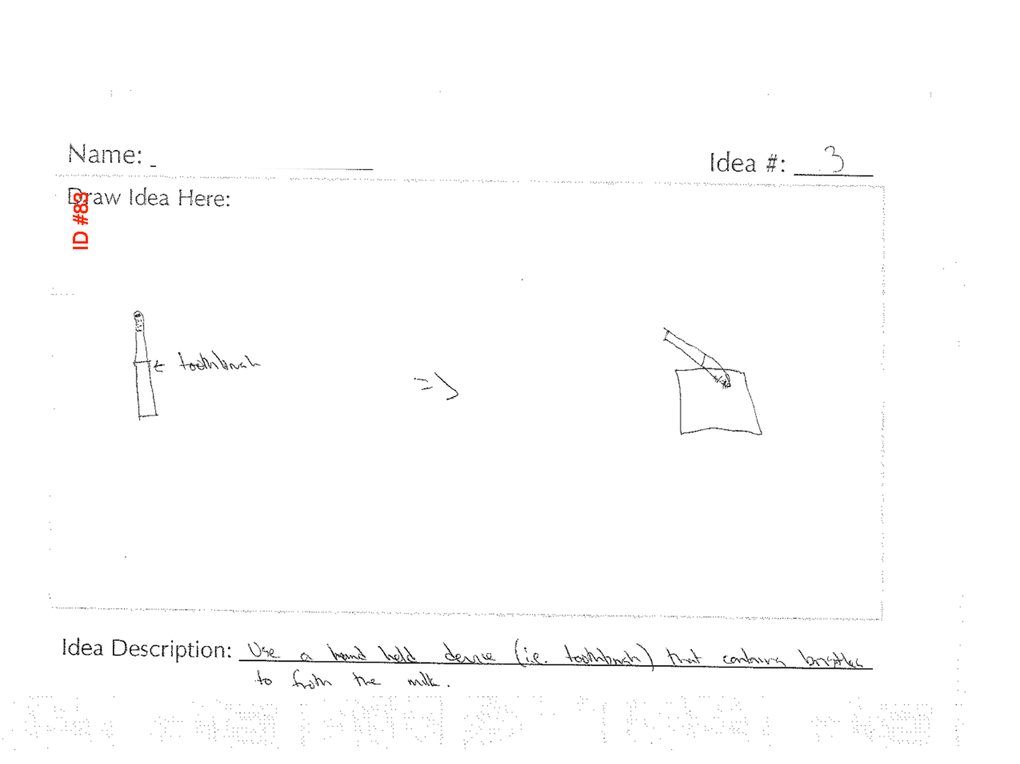 Name:
Idea #: 3
Draw Idea Here:
ID #83
toothbrush
Idea Description: Use a hand held device (i.e. toothbrush) that contains bristles
to froth the milk.